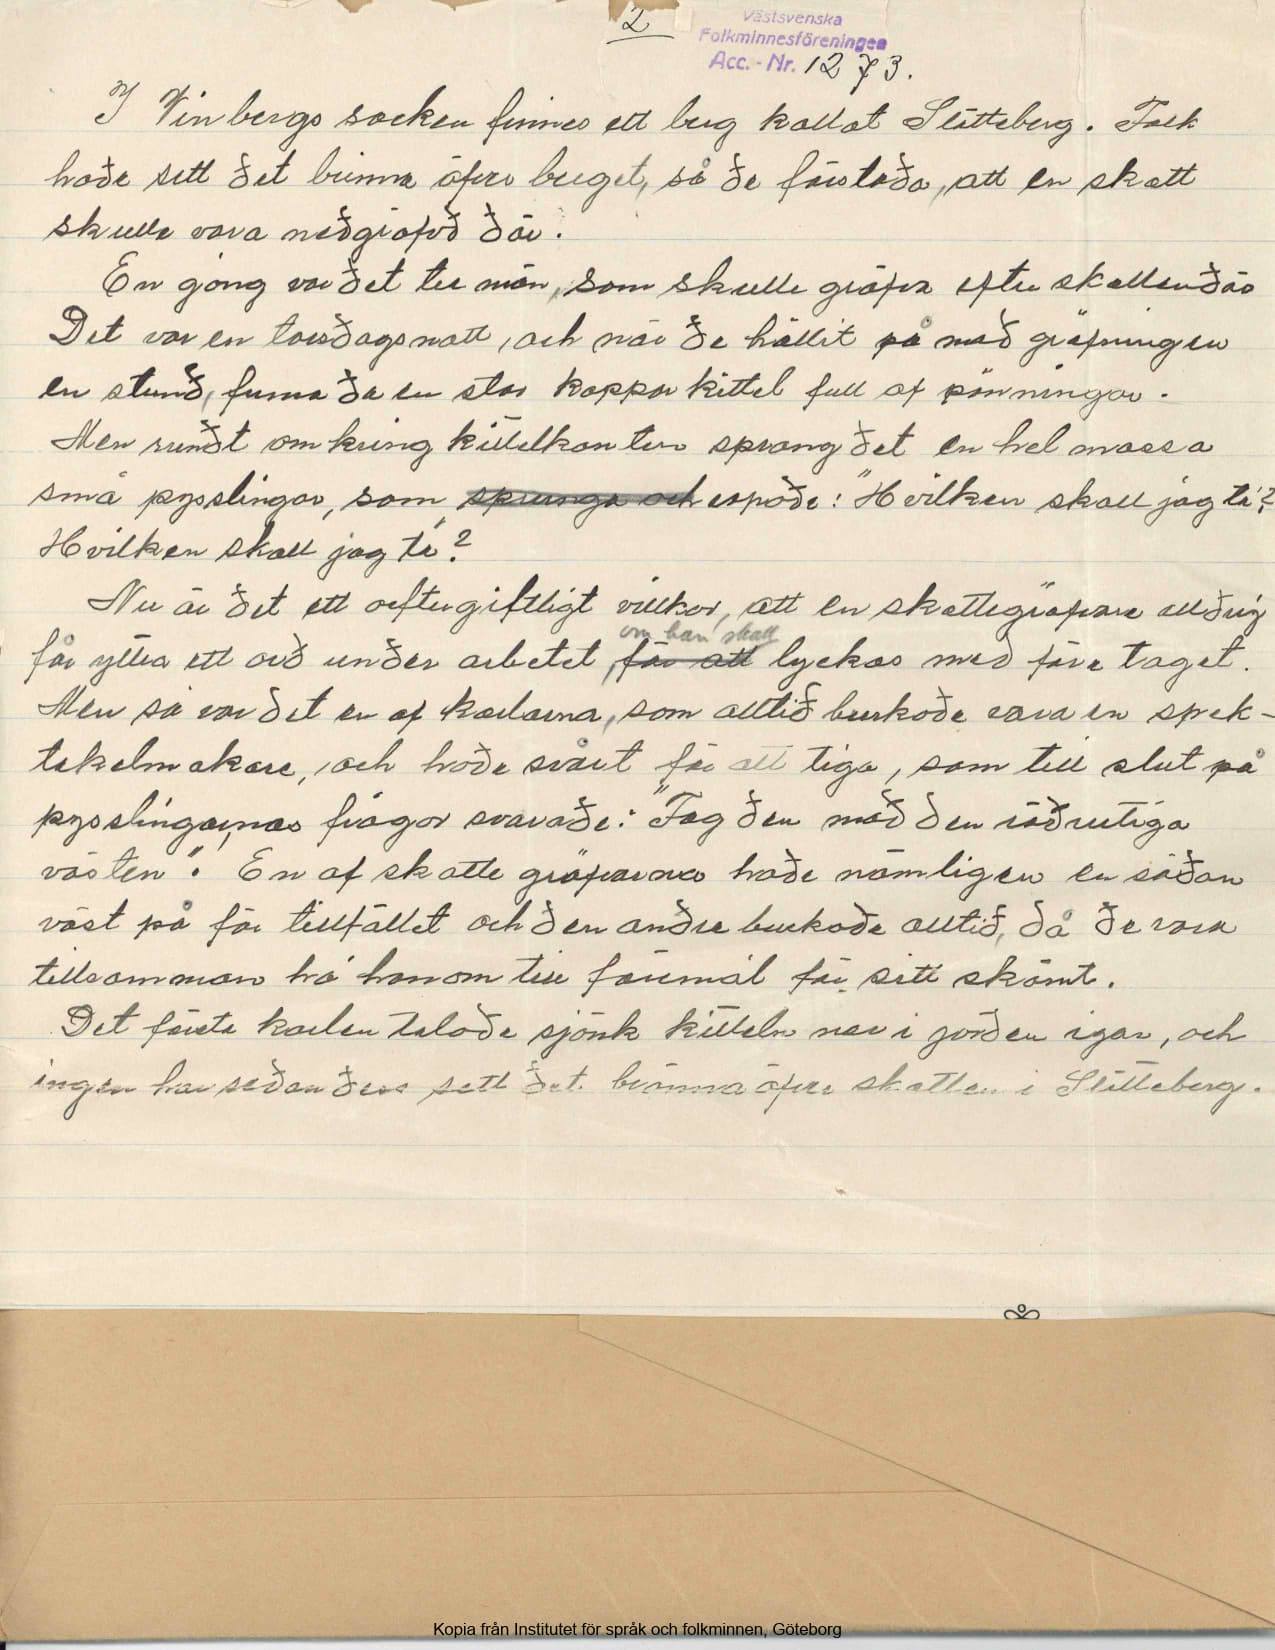 2
Västsvenska
Folkminnesföreningen
Acc. - Nr. 1273.
I Vinbergs socken finnes ett berg kallat Slätteberg. Folk
hade sett det brinna öfver berget, så de förstodo, att en skatt
skulle vara nedgräfvd där.
En gång var det tre män, som skulle gräfva efter skatten där
Det var en torsdagsnatt, och när de hållit på med gräfningen
en stund, funno de en stor kopparkittel full af pänningar.
Men rundt omkring kittelkanten sprang det en hel massa
små pysslingar, som sprungo och ropade: "Hvilken skall jag ta?
Hvilken skall jag ta?"
Nu är det ett oeftergiftligt villkor, att en skattegräfvare aldrig
om han skall
får yttra ett ord under arbetet, för att lyckas med företaget.
Men så var det en af karlarna, som alltid brukade vara en spek-
takelmakare, och hade svårt för att tiga, som till slut på
pysslingarnas frågor svarade: "Tag den med den rödrutiga
västen". En af skattegräfvarna hade nämligen en sådan
väst på för tillfället och den andre brukade alltid, då de voro
tillsamman ha honom till föremål för sitt skämt.
Det första karlen talade sjönk kitteln ner i jorden igan, och
ingen har sedan dess sett det brinna öfver skatten i Slätteberg.
Kopia från Institutet för språk och folkminnen, Göteborg